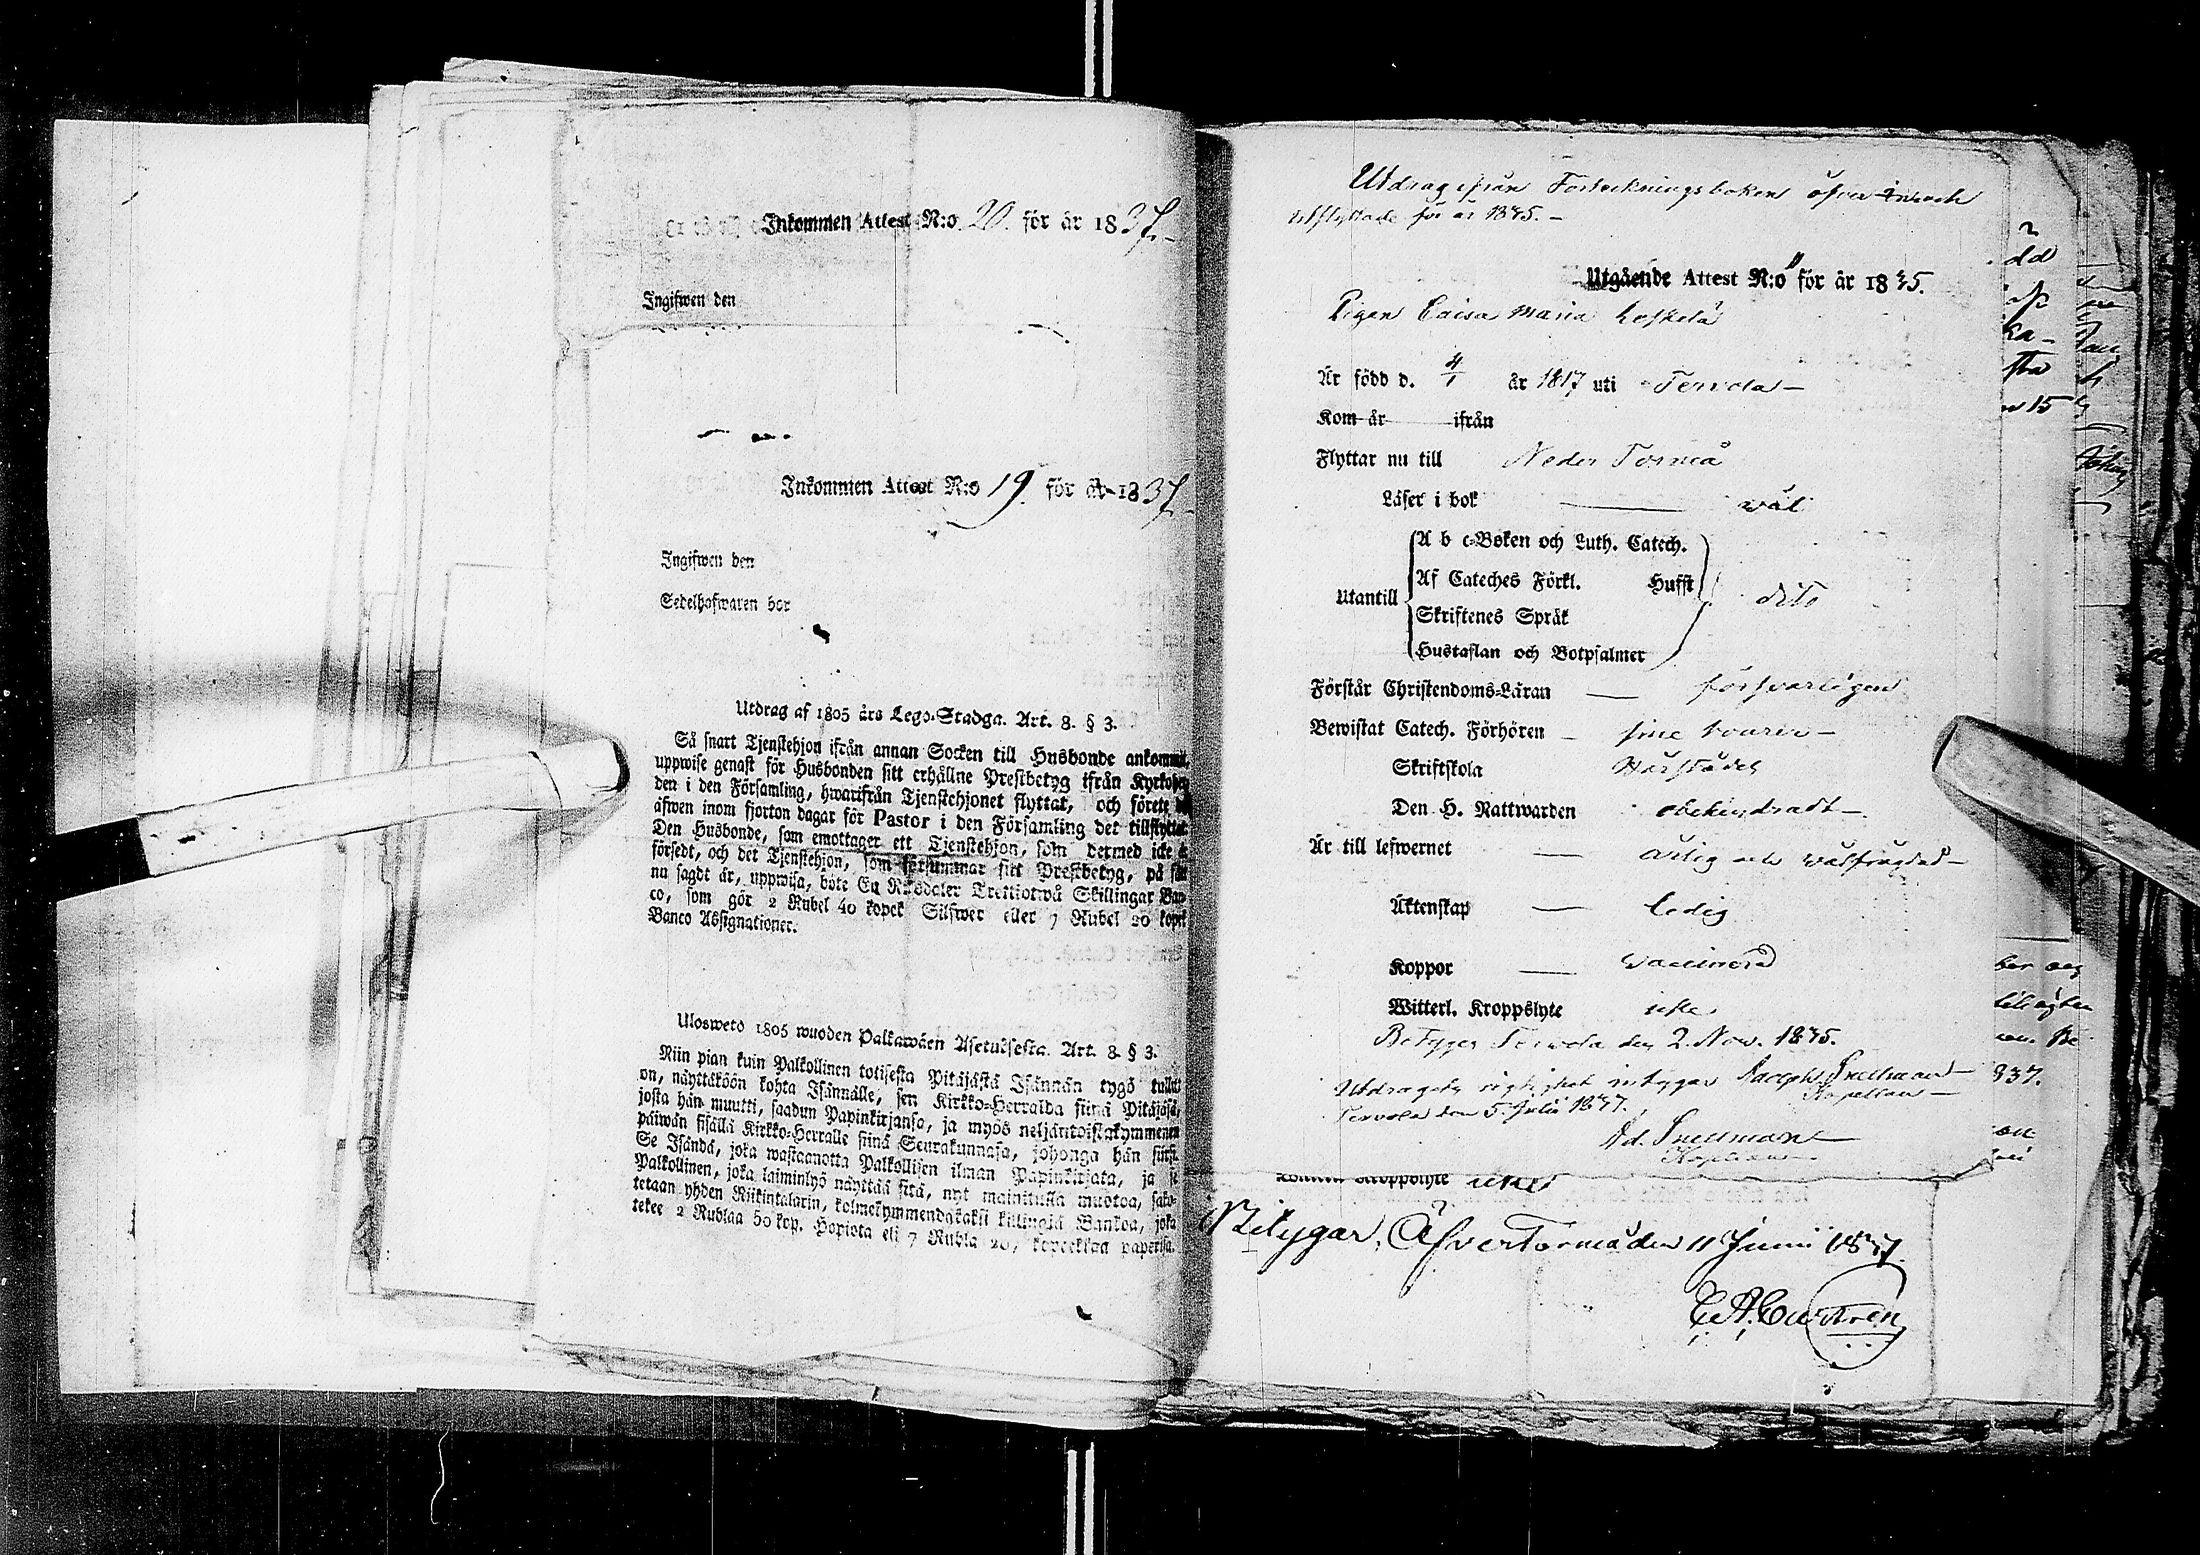 Inkommen Attest N:o 20. för år 1837.
Ingifwen den
Inkommen Attest N:o 19. för år 1837.
Ingifwen den
Sedelhafwaren bor
Utdrag af 1805 års Lego-Stadga. Art. 8. § 3.
Så snart Tjenstehjon ifrån annan Socken till Husbonde ankommit,
uppwise genast för Husbonden sitt erhållne Prestbetyg ifrån
den i den Församling, hwarifrån Tjenstehjonet flyttat, och förete
äfwen inom fjorton dagar för Pastor i den Församling det tillflyttat.
Den Husbonde, som emottager ett Tjenstehjon, som dermed icke är
försedt, och det Tjenstehjon, som försummar sitt Prestbetyg, på sätt
nu sagdt är, uppwisa, böte En Riksdaler Trettiotwå Skillingar Ban-
co, som gör 2 Rubel 40 kopek Silfwer eller 7 Rubel 20 kopek
Banco Assignationer.
Ulosweto 1805 wuoden Palkawäen Asetuksesta. Art. 8. § 3.
Niin pian kuin Palkollinen toisesta Pitäjästä Isännän tygö tullut
on, näyttäköön kohta Isännälle, sen Kirkko-Herralda siinä Pitäjäsä,
josta hän muutti, saadun Papinkirjansa, ja myös neljäntoistakymmenen
päiwän sisällä Kirkko-Herralle siinä Seurakunnasa, johonga hän siirsi.
Se Isändä, joka wastaanotta Palkollisen ilman Papinkirjata, ja se
Palkollinen, joka laiminlyö näyttää sitä, nyt mainitulla muotoa, sako-
tetaan yhden Riikintalarin, kolmekymmendäkaksi killingiä Bankoa, joka
tekee 2 Rublaa 50 kop. Hopiota eli 7 Rubla 20, kopeekkaa paperisa.
Utdrag ifrån Förteckningsboken öfver in och
utflyttade för år 1835.
Utgående Attest N:o för år 1835.
Pigan Caisa Maria
Är född d. 4/1 år 1817 uti Tervola
Kom år ifrån
Flyttar nu till Neder Torneå
Läser i bok wäl
Utantill
A b c-Boken och Luth. Catech.
Af Cateches Förkl. Hufst
Skriftenes Språk
Hustaflan och Botpsalmer
dito
Förstår Christendoms-Läran försvarligen
Bewistat Catech. Förhören
Skriftskola
Den H. Nattwarden obehindradt
Är till lefwernet ärlig och wälfrägdad
Äktenskap ledig
Koppor Vaccinerad
Witterl. Kroppslyte icke
Betygar Tervola den 2. Nov. 1835.
Utdragets riktighet intygar Adolph Snellman
Tervola den 5 Julii 1837. Kapellan
Ad. Snellman
Kapellan
Kroppslyte icke
Betygar, Öfver Torneå den 11 Junii 1837.
C. A. Castrén